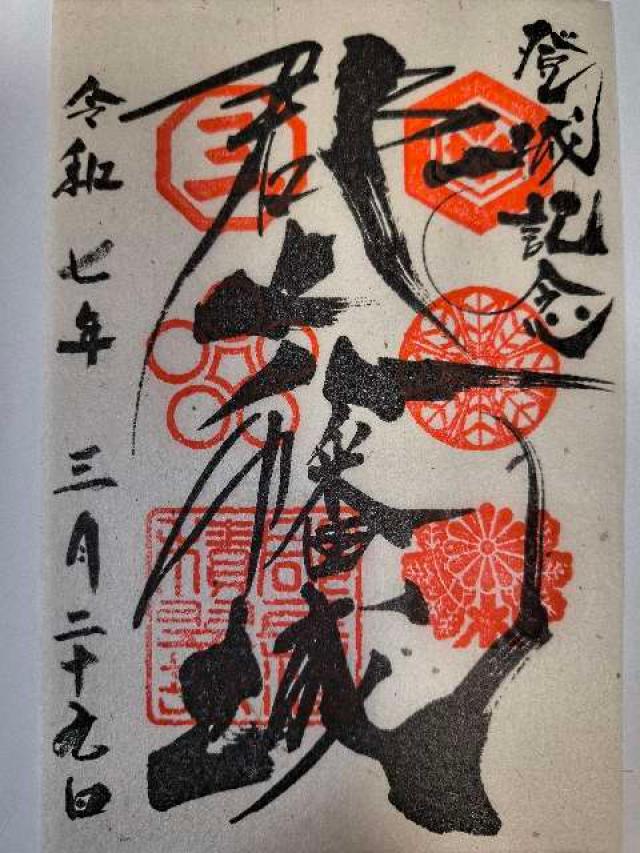 登城記念
郡上八幡城
令和七年 三月二十九日